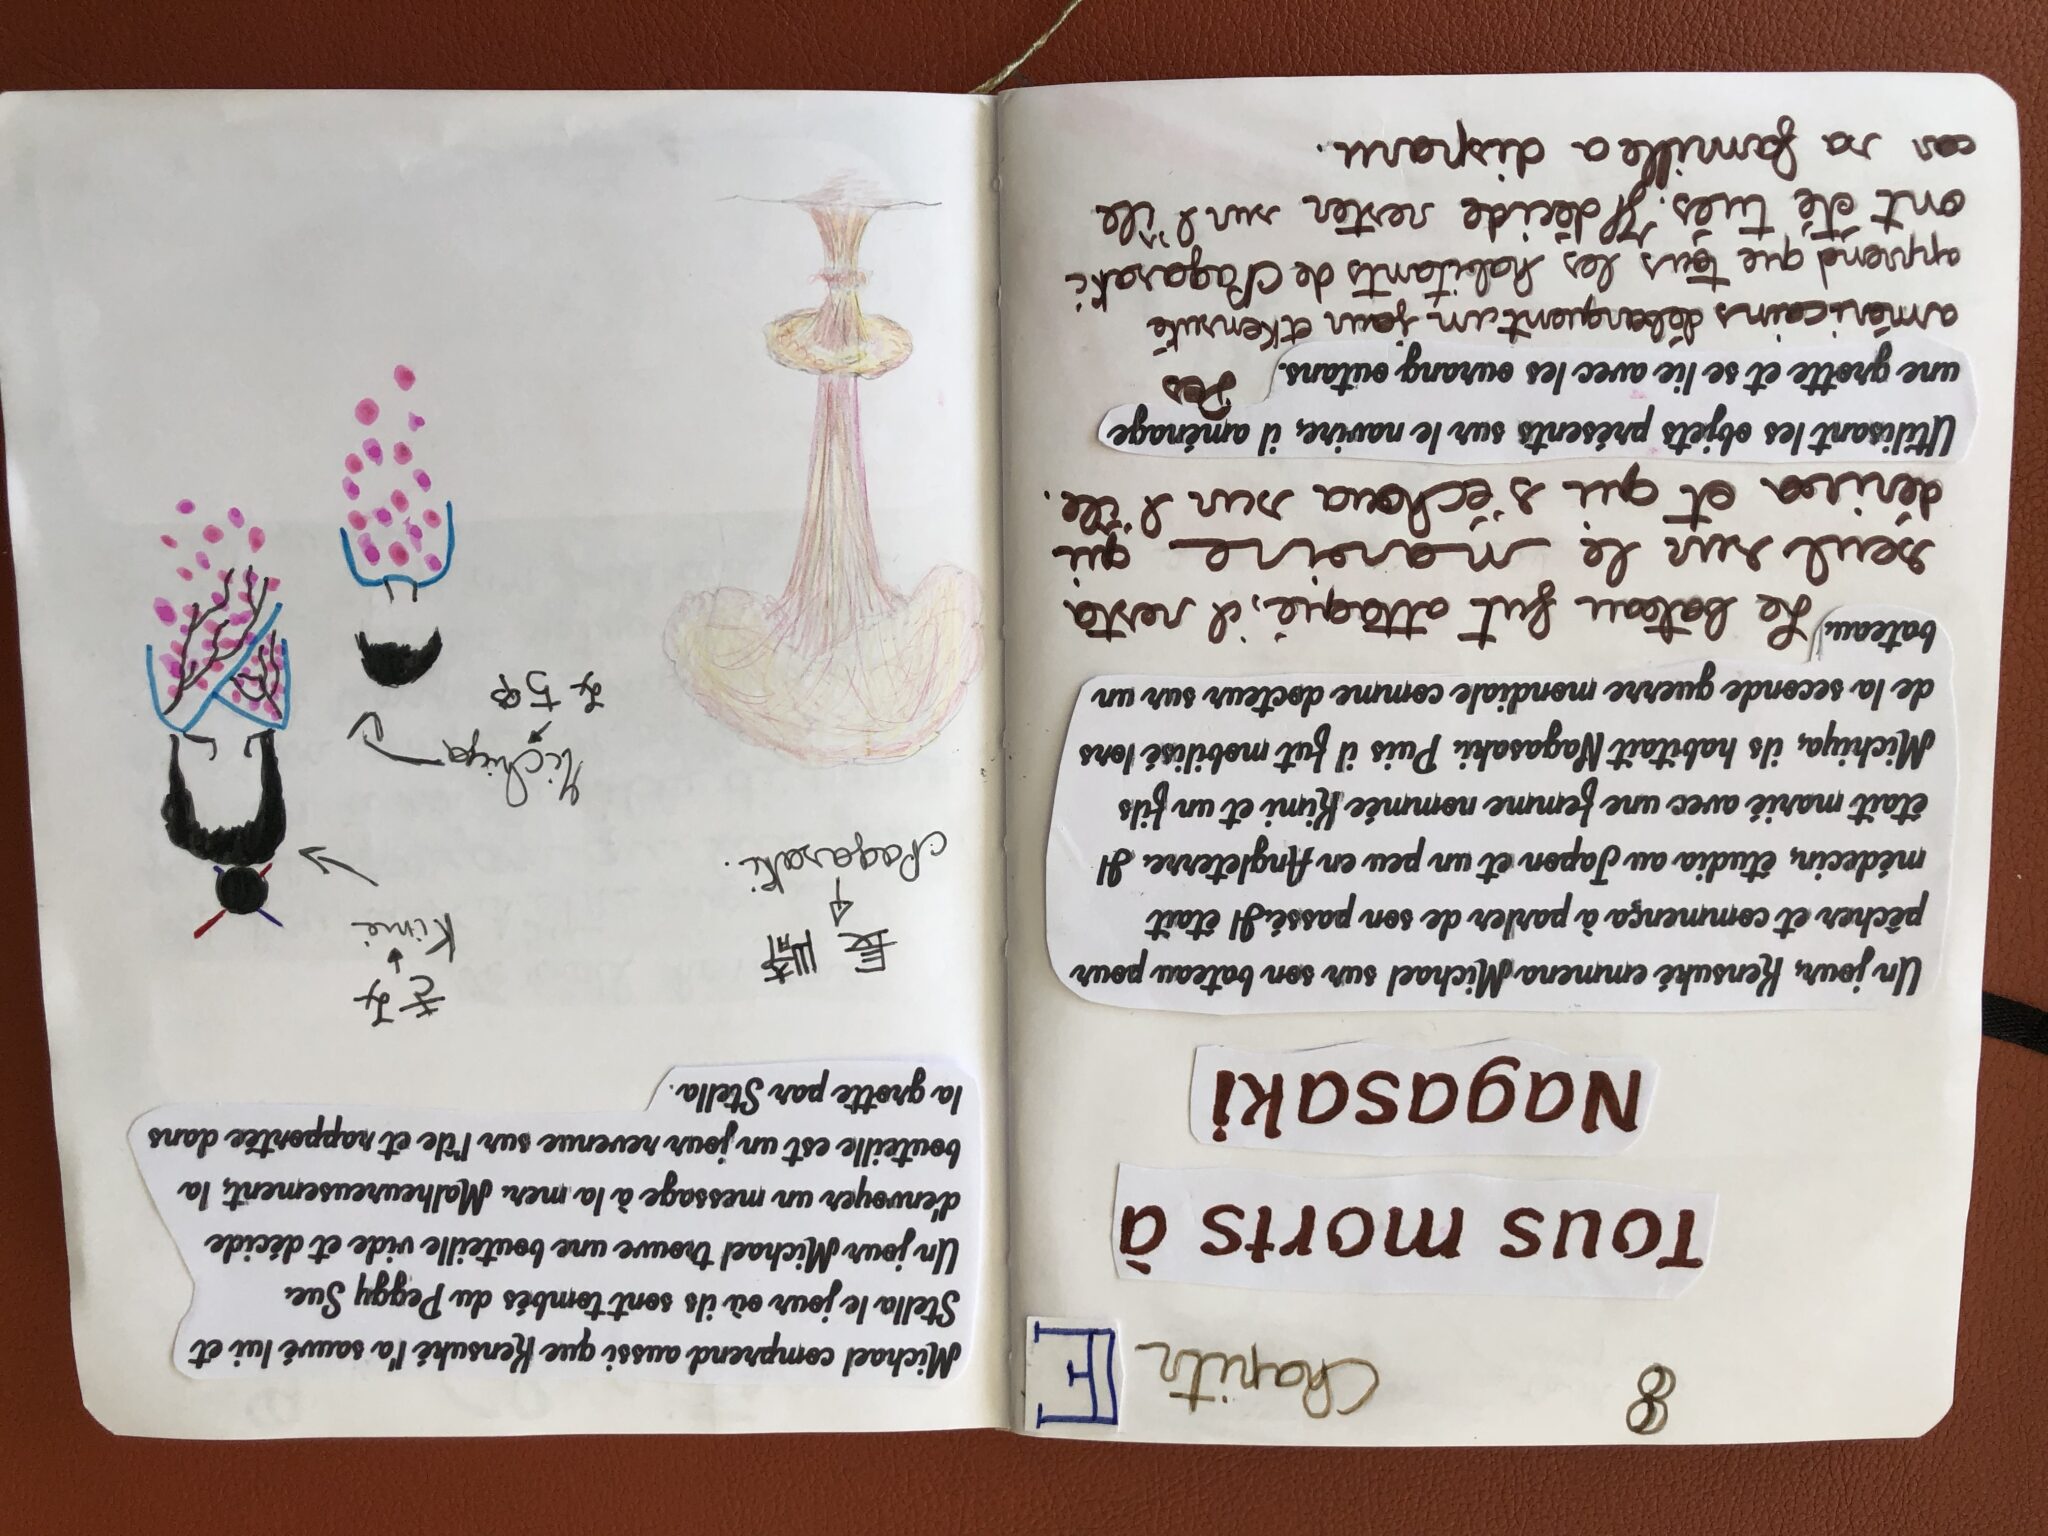 8 Chapitre
Tous morts à
Nagasaki
Un jour, Kensuké emmena Michael sur son bateau pour
pêcher et commença à parler de son passé. Il était
médecin, étudia au Japon et un peu en Angleterre. Il
était marié avec une femme nommée Kimi et un fils
Michiya, ils habitait Nagasaki. Puis il fut mobilisé lors
de la seconde guerre mondiale comme docteur sur un
bateau. Le bateau fut attaqué, il resta
seul sur le navire qui
dériva et qui s'échoua sur l'île.
Utilisant les objets présents sur le navire, il aménage
une grotte et se lie avec les ourang outans. Des
américains débarquent un jour et Kensuké
apprend que tous les habitants de Nagasaki
ont été tués. Il décide rester sur l'île
car sa famille a disparu.
Michael comprend aussi que Kensuké l'a sauvé lui et
Stella le jour où ils sont tombés du Peggy Sue.
Un jour Michael trouve une bouteille vide et décide
d'envoyer un message à la mer. Malheureusement, la
bouteille est un jour revenue sur l'île et rapportée dans
la grotte par Stella.
長崎
Nagasaki.
きみ
Kimi
Michiya
みちや